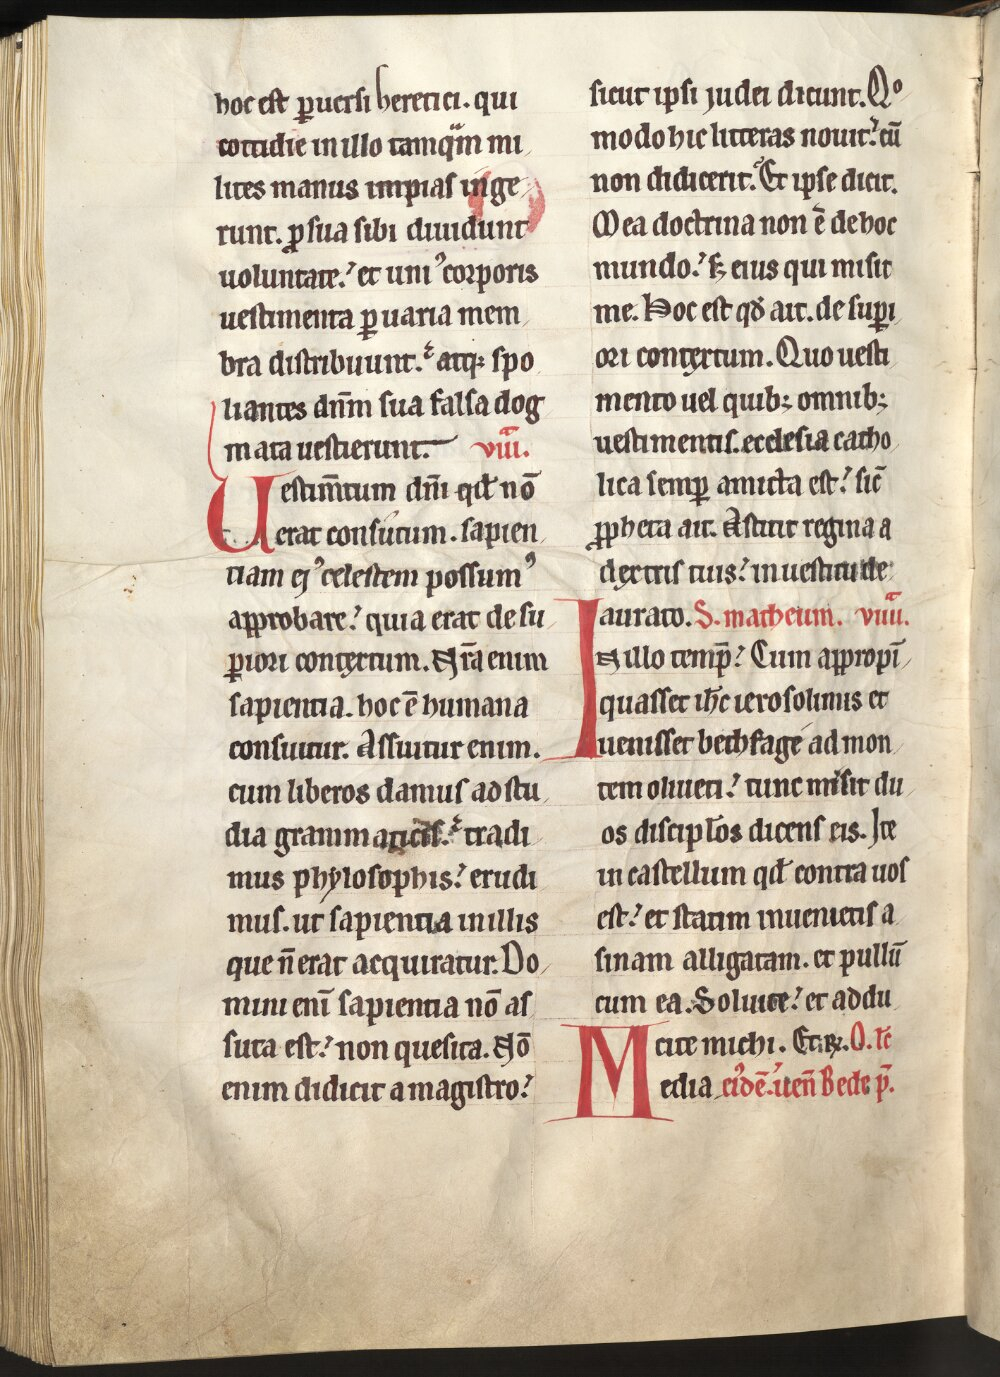 hoc est ꝑuersi heretici. qui
cottidie in illo tamq̃m mi
lites manus impias inge
runt. ꝓ sua sibi diuidunt
uoluntate? et uniꝰ corporis
uestimenta ꝑ uaria mem
bra distribuunt. atq; spo
liantes dn̅m sua falsa dog
mata uestierunt. viii.
Uestim̅tum dn̅i qd̅ nō
erat consutum. sapien
tiam eiꝰ celestem possumꝰ
approbare? quia erat de su
ꝑiori contextum. Nr̅a enim
sapientia. hoc ē humana
consuitur. Assuitur enim.
cum liberos damus ad stu
dia grammaticis. tradi
mus phylosophis? erudi
mus. ut sapientia in illis
que n̅ erat acquiratur. Do
mini eni̅ sapientia nō as
suta est? non quesita. Nō
enim didicit a magistro?
sicut ipsi iudei dicunt. Qo
modo hic litteras nouit? cū
non didicerit. Et ipse dicit.
Mea doctrina non ē de hoc
mundo? sꝫ eius qui misit
me. Hoc est qđ ait. de supi
ori contextum. Quo uesti
mento uel quibꝫ omnibꝫ
uestimentis. ecclesia catho
lica semꝑ amicta est? sic̅
ꝓpheta ait. Astitit regina a
dextris tuis? in uestitu de
aurato. S. matheum. viiii.
In illo temp̅? Cum appropi̅
quasset ih̅c ierosolimis et
uenisset bethfage ad mon
tem oliueti? tunc misit du
os discipl̅os dicens eis. Ite
in castellum qd̅ contra uos
est? et statim inuenietis a
sinam alligatam. et pullū
cum ea. Soluite? et addu
cite michi. Et R. O. lc̅
Media eiꝰdē. uen̅ Bede p̅.